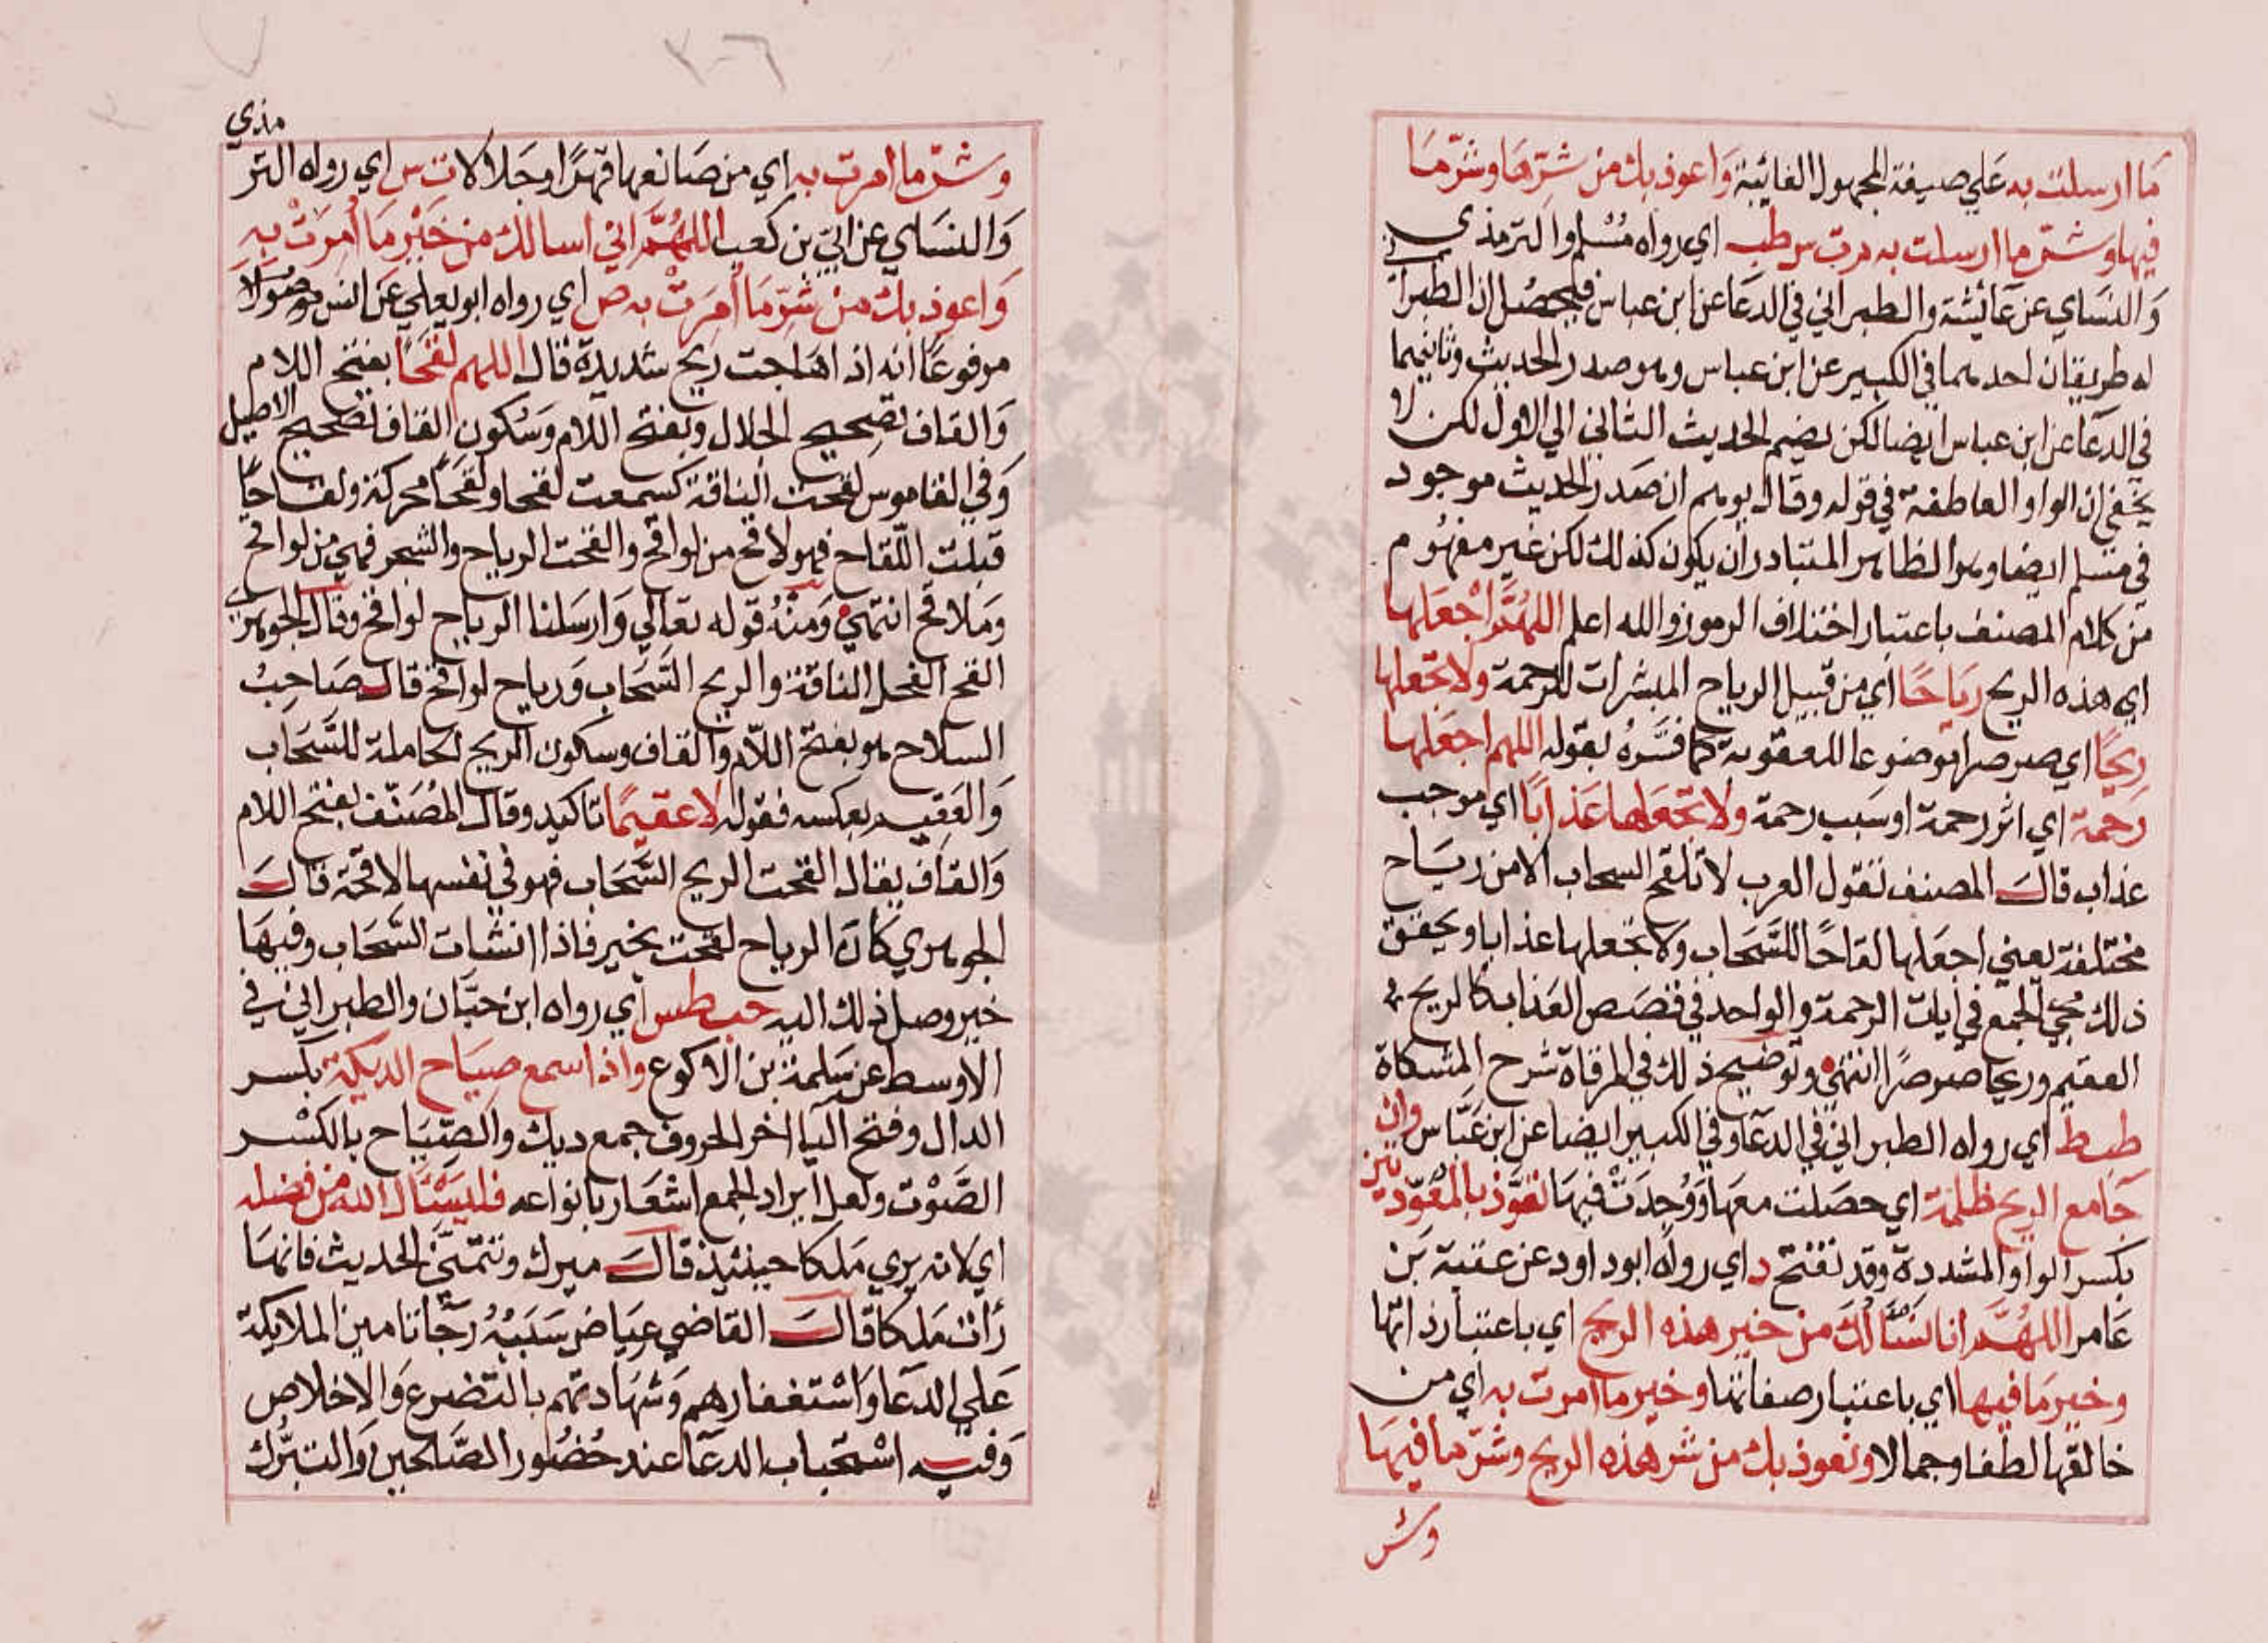 ما ارسلت به علي صيغة المجهول الغائبة واعوذ بك من شرها وشر ما
فيها وشر ما ارسلت به م ت س طب اي رواه مسلم والترمذي
والنساي عن عائشة والطبراني في الدعا عن ابن عباس فليحصل ان الطبراني
له طريقان احدهما في الكبير عن ابن عباس وهو صدر الحديث وثانيهما
في الدعا عن ابن عباس ايضا لكن بضم الحديث الثاني الي الاول لكن لا
يخفي ان الواو العاطفة في قوله وقال يوهم ان صدر الحديث موجود
في مسلم ايضا وهو الظاهر المتبادر ان يكون كذلك لكن غير مفهوم
من كلام المصنف باعتبار اختلاف الرموز والله اعلم اللهم اجعلها
اي هذه الريح رياحا اي من قبيل الرياح المبشرات للرحمة ولا تجعلها
ريحا اي صرصرا موضوعا للعقوبة كما فسره بقوله اللهم اجعلها
رحمة اي اثر رحمة او سبب رحمة ولا تجعلها عذابا اي موجب
عذاب قال المصنف تقول العرب لا تلقح السحاب الا من رياح
مختلفة يعني اجعلها لقاحا للسحاب ولا تجعلها عذابا ويحقق
ذلك مجي الجمع في ايات الرحمة والواحد في قصص العذاب كالريح
العقيم وريحا صرصرا انتهي وتوضيح ذلك في المرقاة شرح المشكاة
ط طب اي رواه الطبراني في الدعا وفي الكبير ايضا عن ابن عباس وان
جا مع الريح ظلمة اي حصلت معها ووجدت فيها تعوذ بالمعوذتين
بكسر الواو المشددة وقد تفتح د اي رواه ابو داود عن عقبة بن
عامر اللهم انا نسالك من خير هذه الريح اي باعتبار ذاتها
وخير ما فيها اي باعتبار صفاتها وخير ما امرت به اي من
خالقها لطفا وجمالا ونعوذ بك من شر هذه الريح وشر ما فيها
وشر
وشر ما امرت به اي من صانعها قهرا وجلالا ت س اي رواه الترمذي
والنساي عن ابي بن كعب اللهم اني اسالك من خير ما امرت به
واعوذ بك من شر ما امرت به ص اي رواه ابو يعلي عن انس موصولا
مرفوعا انه اذا هاجت ريح شديدة قال اللهم لقحا بفتح اللام
والقاف تصحيح الجلال وبفتح اللام وسكون القاف تصحيح الاصيل
وفي القاموس لقحت الناقة كسمعت لقحا ولقحا محركة ولقاحا
قبلت اللقاح فهو لاقح من لواقح والقحت الرياح والشجر فهي من لواقح
وملاقح انتهي ومنه قوله تعالي وارسلنا الرياح لواقح وقال الجوهري
القح الفحل الناقة والريح السحاب ورياح لواقح قال صاحب
السلاح هو بفتح اللام والقاف وسكون الريح الحاملة للسحاب
والعقيم بعكسه فقوله لا عقيما تاكيد وقال المصنف بفتح اللام
والقاف يقال القحت الريح السحاب فهو في نفسها لاقحة قال
الجوهري كان الرياح لقحت بخير فاذا انشات السحاب وفيها
خير وصل ذلك اليه حب طس اي رواه ابن حبان والطبراني في
الاوسط عن سلمة بن الاكوع واذا سمع صياح الديكة بكسر
الدال وفتح اليا اخر الحروف جمع ديك والصياح بالكسر
الصوت ولعل ايراد الجمع اشعار بانواعه فليسال الله من فضله
اي لانه يري ملكا حينئذ قال ميرك وتتمة الحديث فانها
رات ملكا قال القاضي عياض سببه رجا تامين الملايكة
علي الدعا واستغفارهم وشهادتهم بالتضرع والاخلاص
وفيه استحباب الدعا عند حضور الصلحين والتبرك